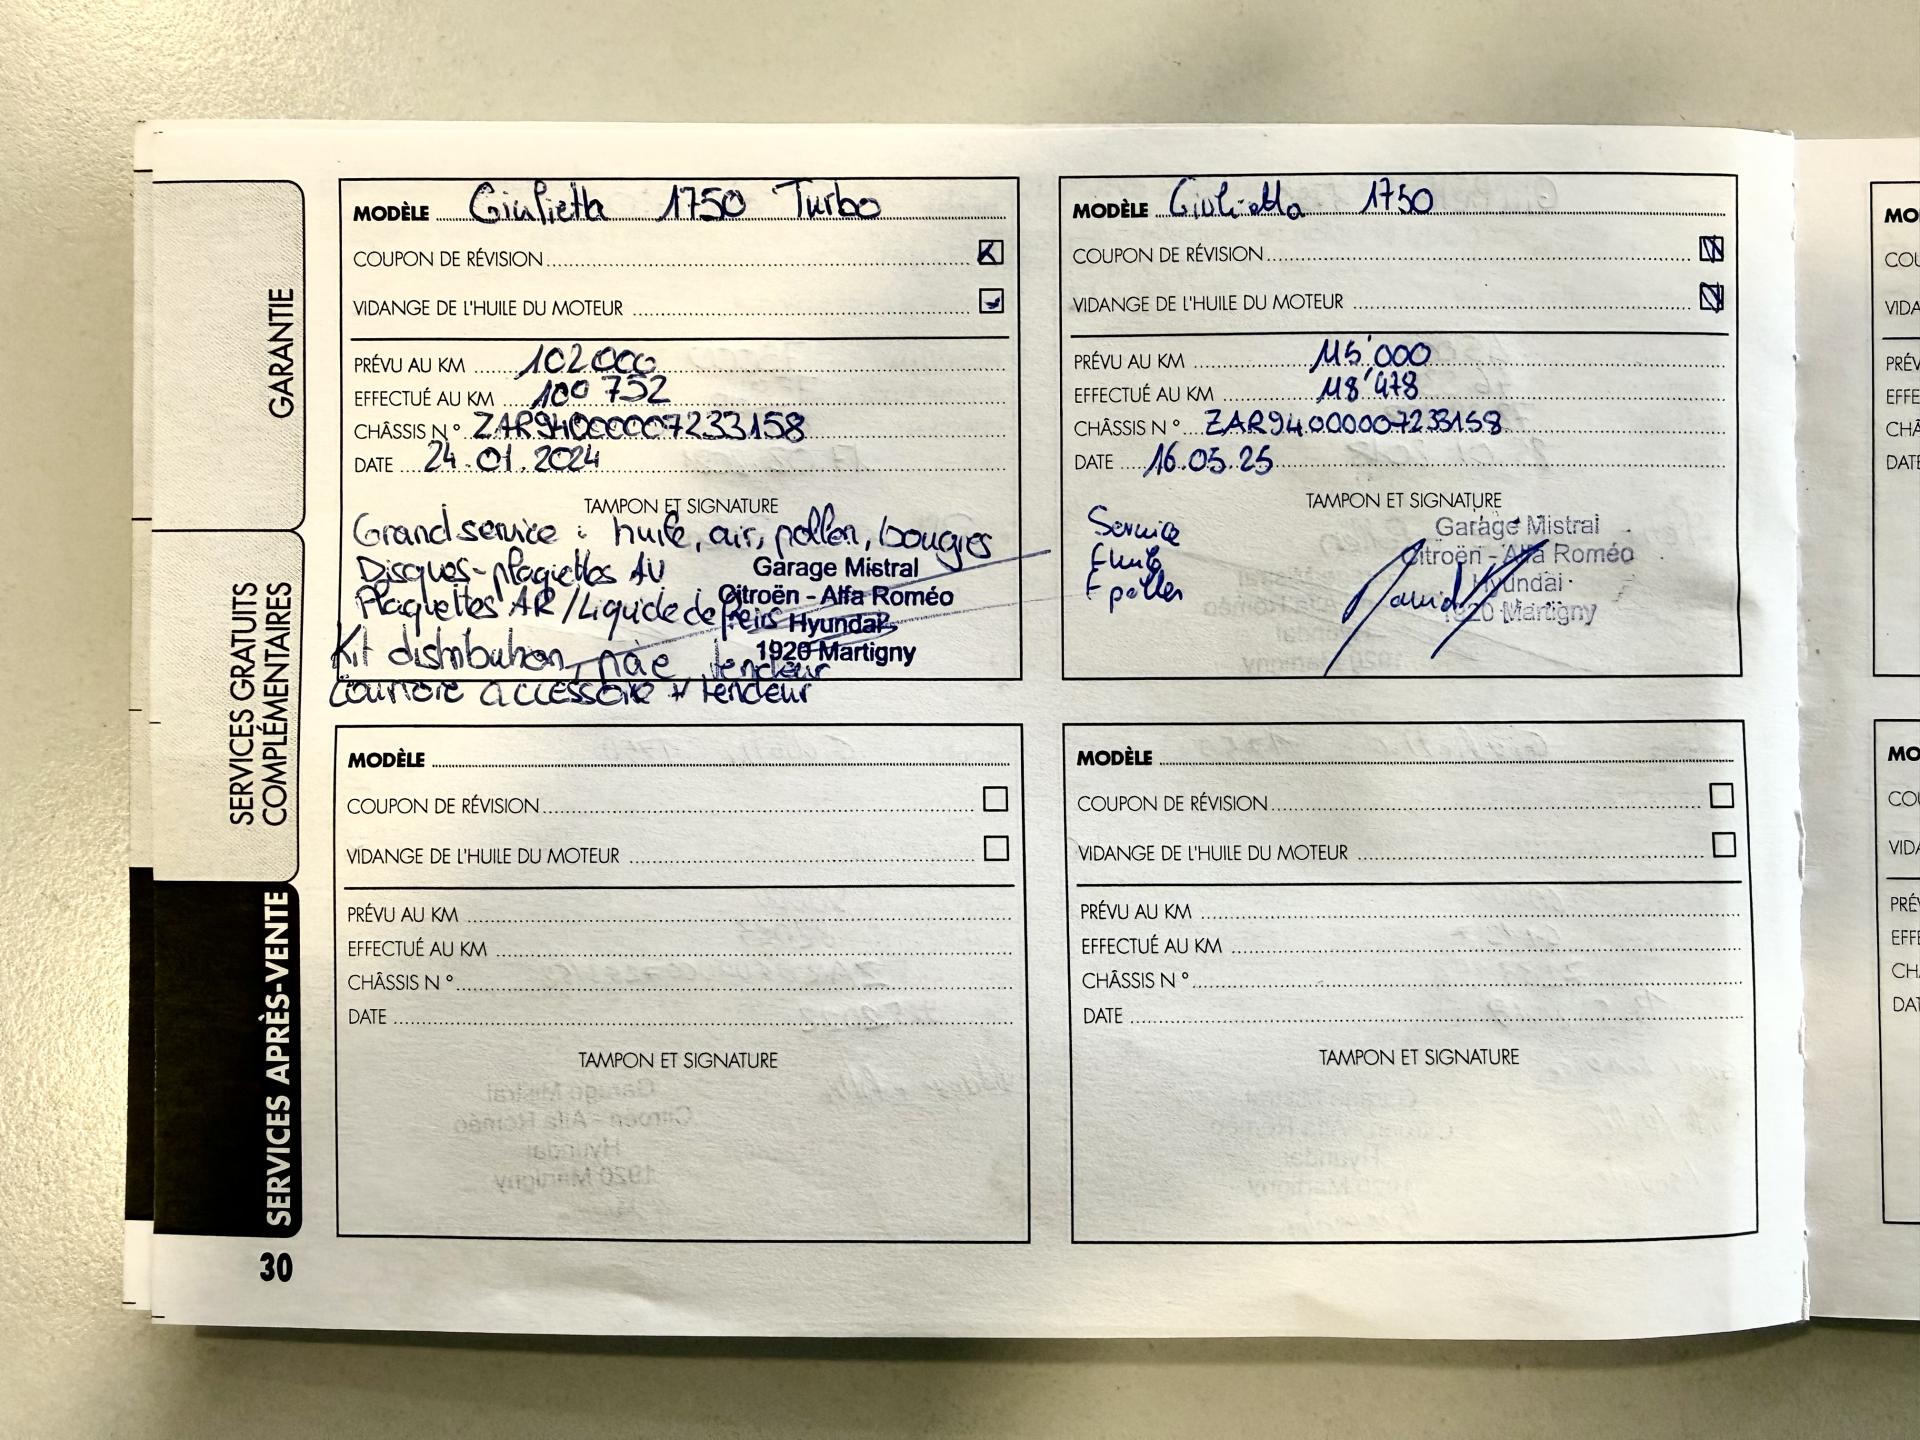 GARANTIE
SERVICES GRATUITS
COMPLÉMENTAIRES
SERVICES APRÈS-VENTE
30
MODÈLE Giulietta 1750 Turbo
COUPON DE RÉVISION
VIDANGE DE L'HUILE DU MOTEUR
PRÉVU AU KM 102000
EFFECTUÉ AU KM 100 752
CHÂSSIS N° ZAR94000007233158
DATE 24.01.2024
TAMPON ET SIGNATURE
Grand service : huile, air, pollen, bougies
Disques-plaquettes AV
Plaquettes AR/Liquide de freins
Kit distribution, tendeur
courroie accessoire + tendeur
Garage Mistral
Citroën - Alfa Roméo
Hyundai
1920 Martigny
MODÈLE Giulietta 1750
COUPON DE RÉVISION
VIDANGE DE L'HUILE DU MOTEUR
PRÉVU AU KM 115'000
EFFECTUÉ AU KM 118'478
CHÂSSIS N° ZAR94000007233158
DATE 16.05.25
TAMPON ET SIGNATURE
Service
F pollen
Garage Mistral
Citroën - Alfa Roméo
Hyundai
1920 Martigny
MODÈLE
COUPON DE RÉVISION
VIDANGE DE L'HUILE DU MOTEUR
PRÉVU AU KM
EFFECTUÉ AU KM
CHÂSSIS N°
DATE
TAMPON ET SIGNATURE
MODÈLE
COUPON DE RÉVISION
VIDANGE DE L'HUILE DU MOTEUR
PRÉVU AU KM
EFFECTUÉ AU KM
CHÂSSIS N°
DATE
TAMPON ET SIGNATURE
MO
COU
VIDA
PRÉV
EFFE
CHÂ
DATE
MO
COU
VIDA
PRÉ
EFFE
CH
DAT